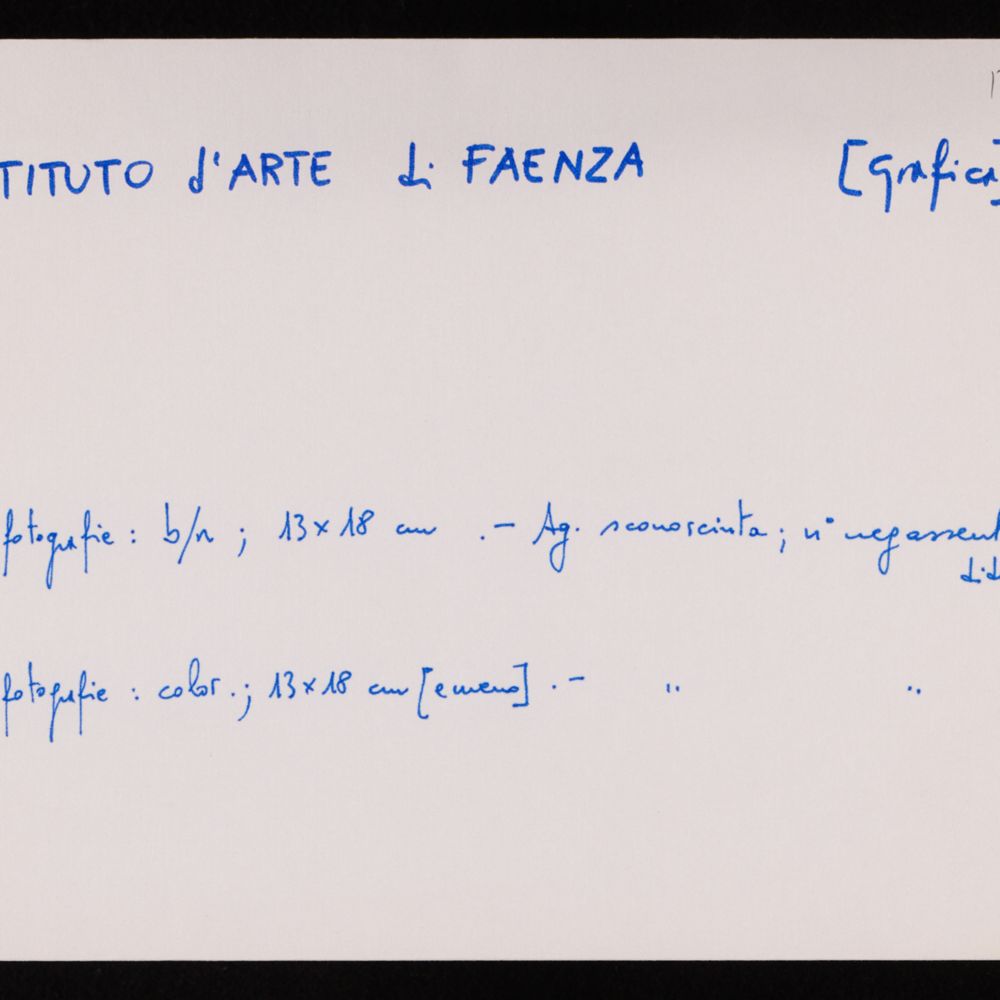 TITUTO d'ARTE di FAENZA [Grafica]
fotografie : b/n ; 13x18 cm .- Ag. sconosciuta ; n° neg assent
fotografie : color. ; 13x18 cm [e meno] .- " "